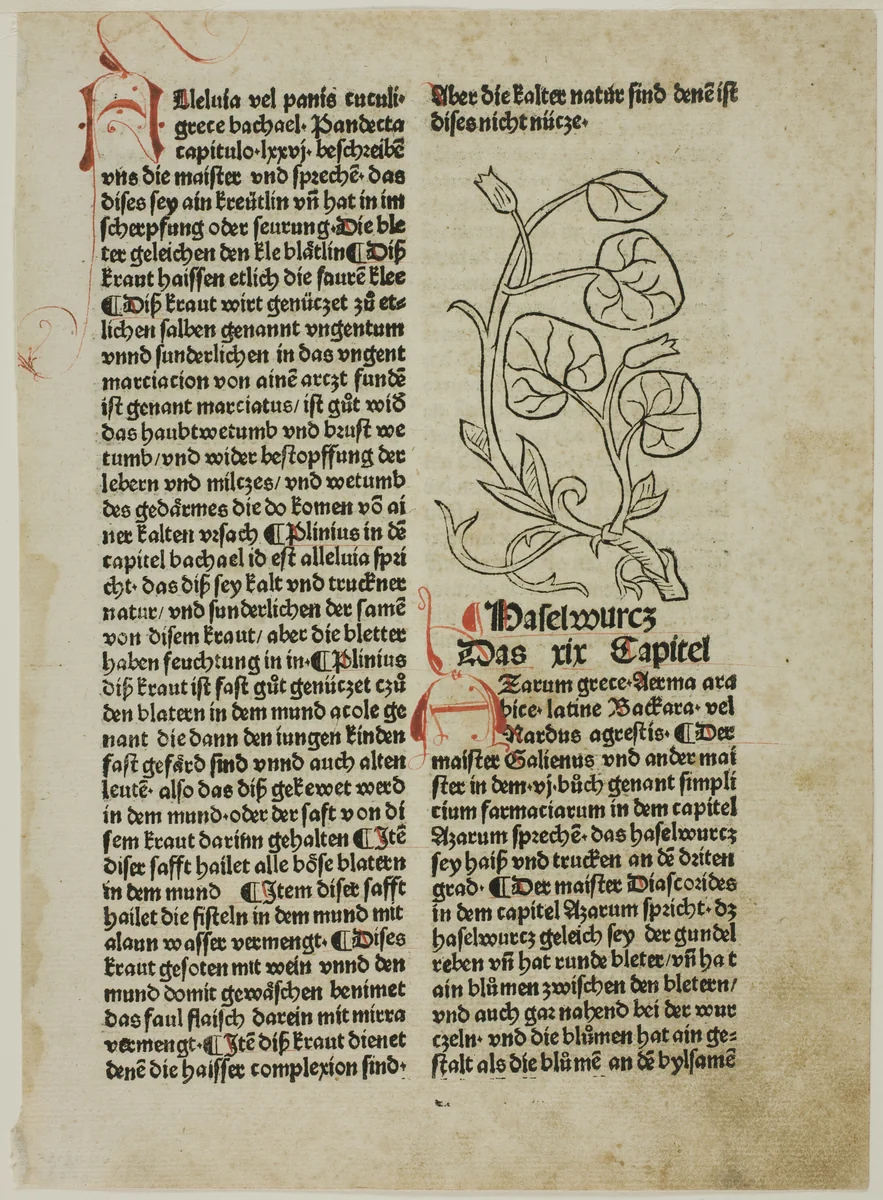 Alleluia vel panis cuculi·
grece bachael· Pandecta
capitulo·lxxvj· beschreibē
vns die maister vnd sprechē· das
dises sey ain kreütlin vñ hat in im
scherpfung oder seurung·Die ble
ter geleichen den kle blåtlin¶Diß
kraut haissen etlich die saurē klee
¶Diß kraut wirt genüczet zů et⸗
lichen salben genannt vngentum
vnnd sunderlichen in das vngent
marciacion von ainē arczt fundē
ist genant marciatus/ ist gůt wid᷑
das haubtwetumb vnd brust we
tumb/vnd wider bestopffung der
lebern vnd milczes/ vnd wetumb
des gedårmes die do komen vō ai
ner kalten vrsach ¶Plinius in dē
capitel bachael id est alleluia spri
cht· das diß sey kalt vnd truckner
natur/ vnd sunderlichen der samē
von disem kraut/ aber die bletter
haben feuchtung in in·¶Plinius
diß kraut ist fast gůt genüczet czů
den blatern in dem mund acole ge
nant die dann den iungen kinden
fast gefård sind vnnd auch alten
leutē· also das diß gekewet werd
in dem mund·oder der saft von di
sem kraut darinn gehalten ¶Itē
diser safft hailet alle böse blatern
in dem mund ¶Item diser safft
hailet die fisteln in dem mund mit
alaun wasser vermengt·¶Dises
kraut gesoten mit wein vnnd den
mund domit gewåschen benimet
das faul flaisch darein mit mirra
vermengt·¶Itē diß kraut dienet
denē die haisser complexion sind·
Aber die kalter natur sind denē ist
dises nicht nücze·
¶Haselwurcz
Das xix Capitel
Azarum grece·Aerma ara
bice· latine Backara· vel
Nardus agrestis· ¶Der
maister Galienus vnd ander mai
ster in dem·vj·bůch genant simpli
cium farmaciarum in dem capitel
Azarum sprechē· das haselwurcz
sey haiß vnd trucken an dē driten
grad· ¶Der maister Diascorides
in dem capitel Azarum spricht· dz
haselwurcz geleich sey der gundel
reben vñ hat runde bleter/vñ hat
ain blůmen zwischen den bletern/
vnd auch gar nahend bei der wur
czeln· vnd die blůmen hat ain ge⸗
stalt als die blůmē an dē bylsamē